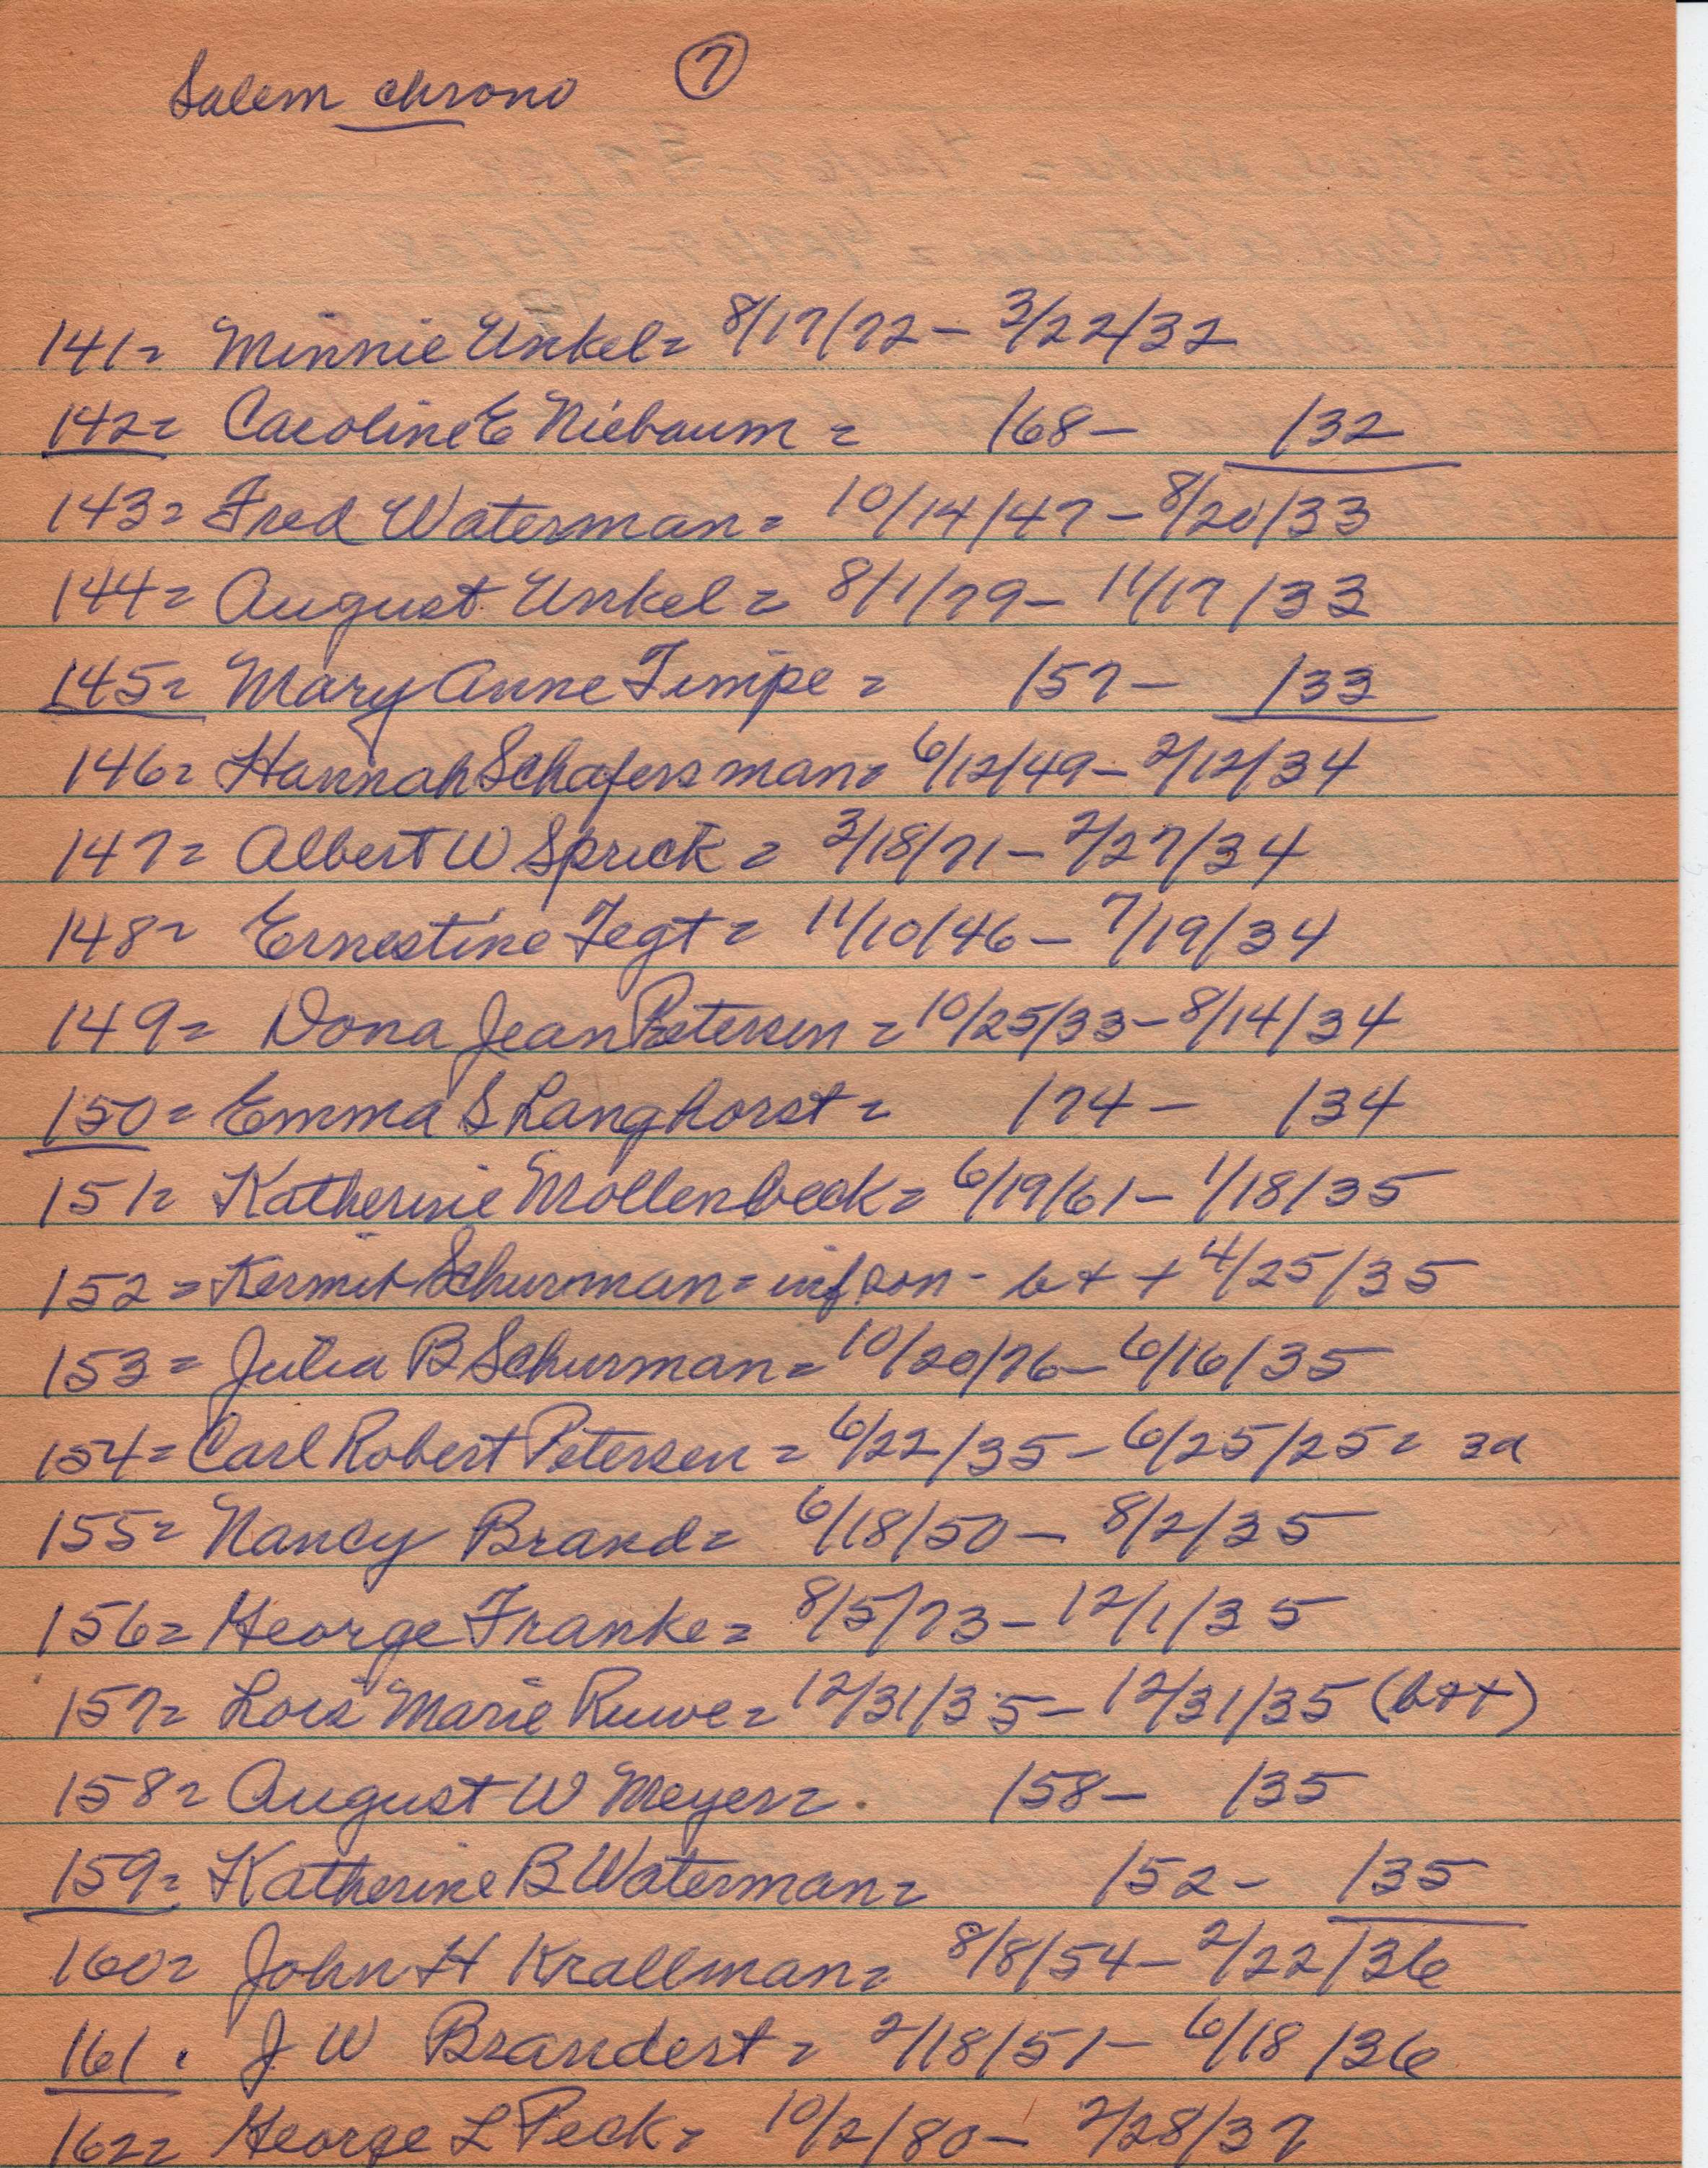 Salem chrono 7
141= Minnie Unkel= 8/17/72 - 3/22/32
142= Caroline E Niebaum = /68 - /32
143= Fred Waterman= 10/14/47 - 8/20/33
144= August Unkel = 8/1/79 - 11/17/33
145= Mary Anne Timpe = /57 - /33
146= Hannah Schafersman= 6/12/49 - 2/12/34
147= Albert W Sprick = 3/18/71 - 2/27/34
148= Ernestine Tegt = 11/10/46 - 7/19/34
149= Dona Jean Petersen = 10/25/33 - 8/14/34
150= Emma S Langhorst = /74 - /34
151= Katherine Mollenbeck= 6/19/61 - 1/18/35
152= Kermit Schurman= inf son - b + + 4/25/35
153= Julia B Schurman= 10/20/76 - 6/16/35
154= Carl Robert Petersen = 6/22/35 - 6/25/25 = 3d
155= Nancy Brand= 6/18/50 - 8/2/35
156= George Franke= 8/5/73 - 12/1/35
157= Lois Marie Ruwe= 12/31/35 - 12/31/35 (b++)
158= August W Meyer= /58 - /35
159= Katherine B Waterman= /52 - /35
160= John H Krallman= 8/8/54 - 2/22/36
161. J W Brandert = 2/18/51 - 6/18/36
162= George L Peck= 10/2/80 - 2/28/37